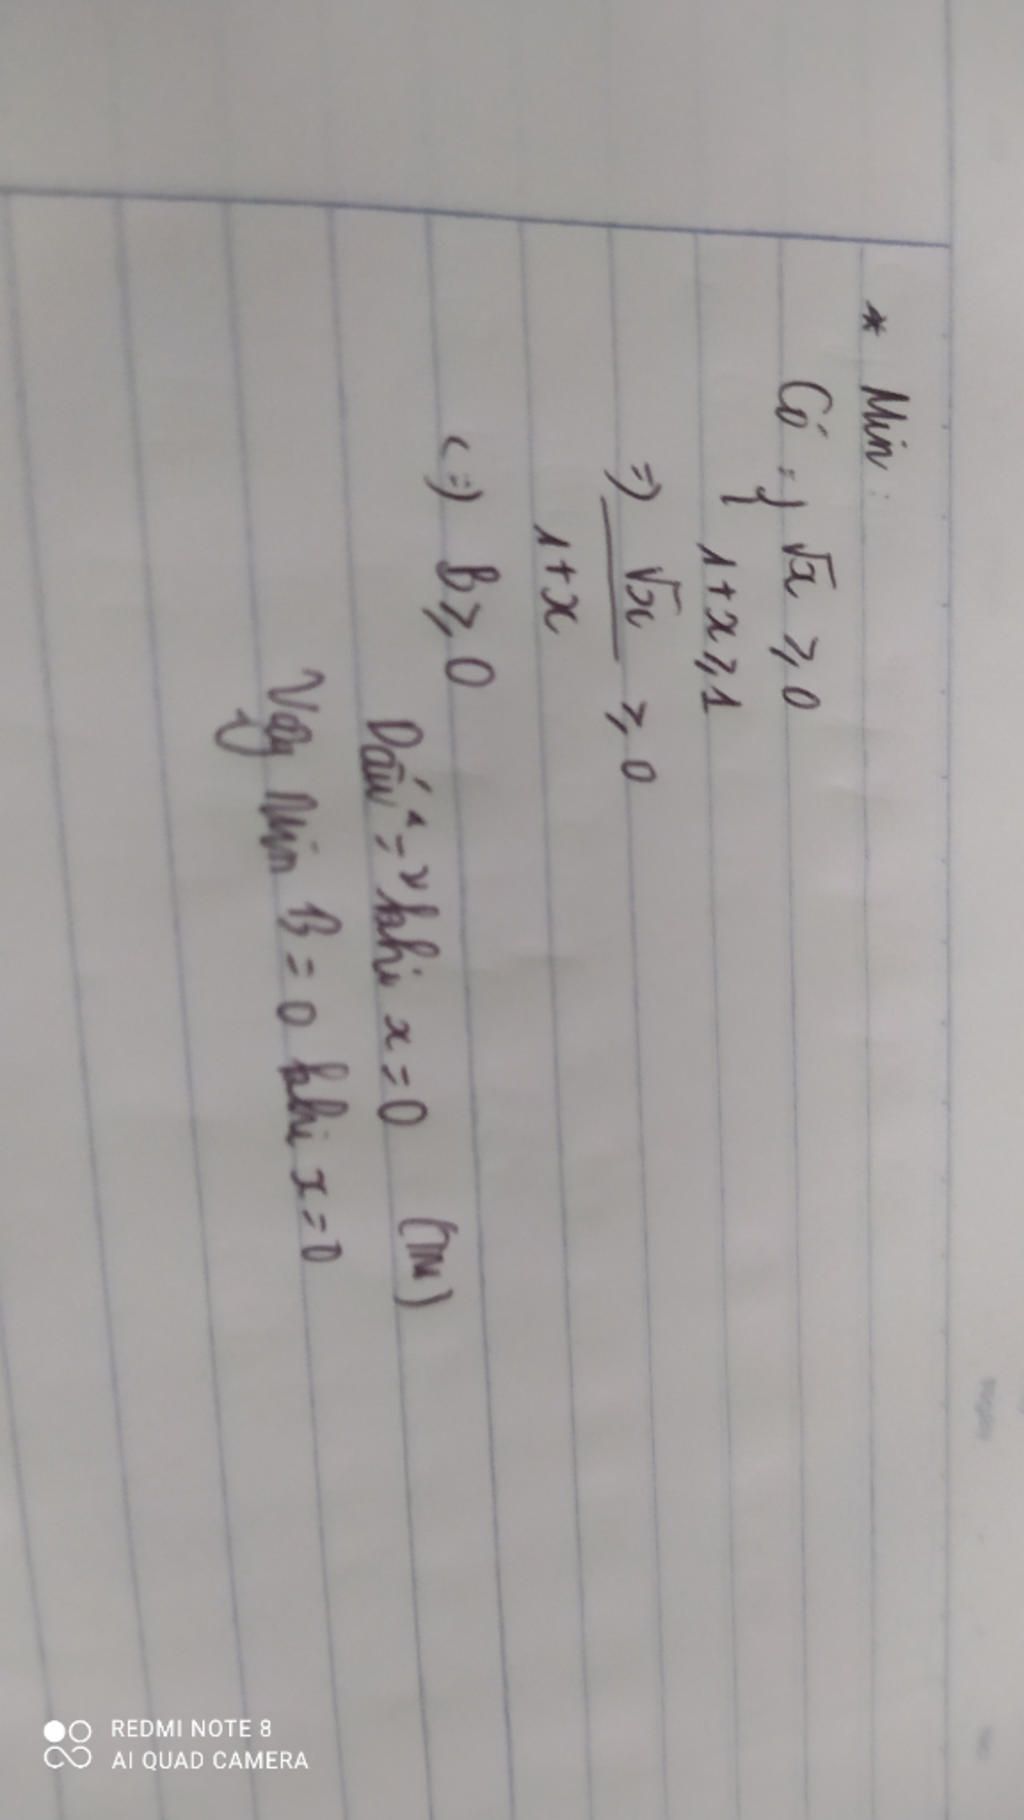 * Min :
Có : { √x ≥ 0
1 + x ≥ 1
=) √x / 1+x ≥ 0
(=) B ≥ 0
Dấu "=" khi x = 0 (TM)
Vậy Min B = 0 khi x = 0
REDMI NOTE 8
AI QUAD CAMERA